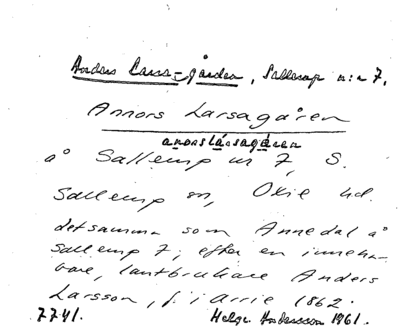 Anders Lars-gården, Sallerup n:r 7.
Annors Larsagåren
anorslássagären
å Sallerup nr 7, S.
Sallerup sn, Oxie hd.
detsamma som Annedal å
Sallerup 7; efter en inneha-
vare, lantbrukare Anders
Larsson, f. i Arrie 1862.
7741. Helge Andersson 1961.